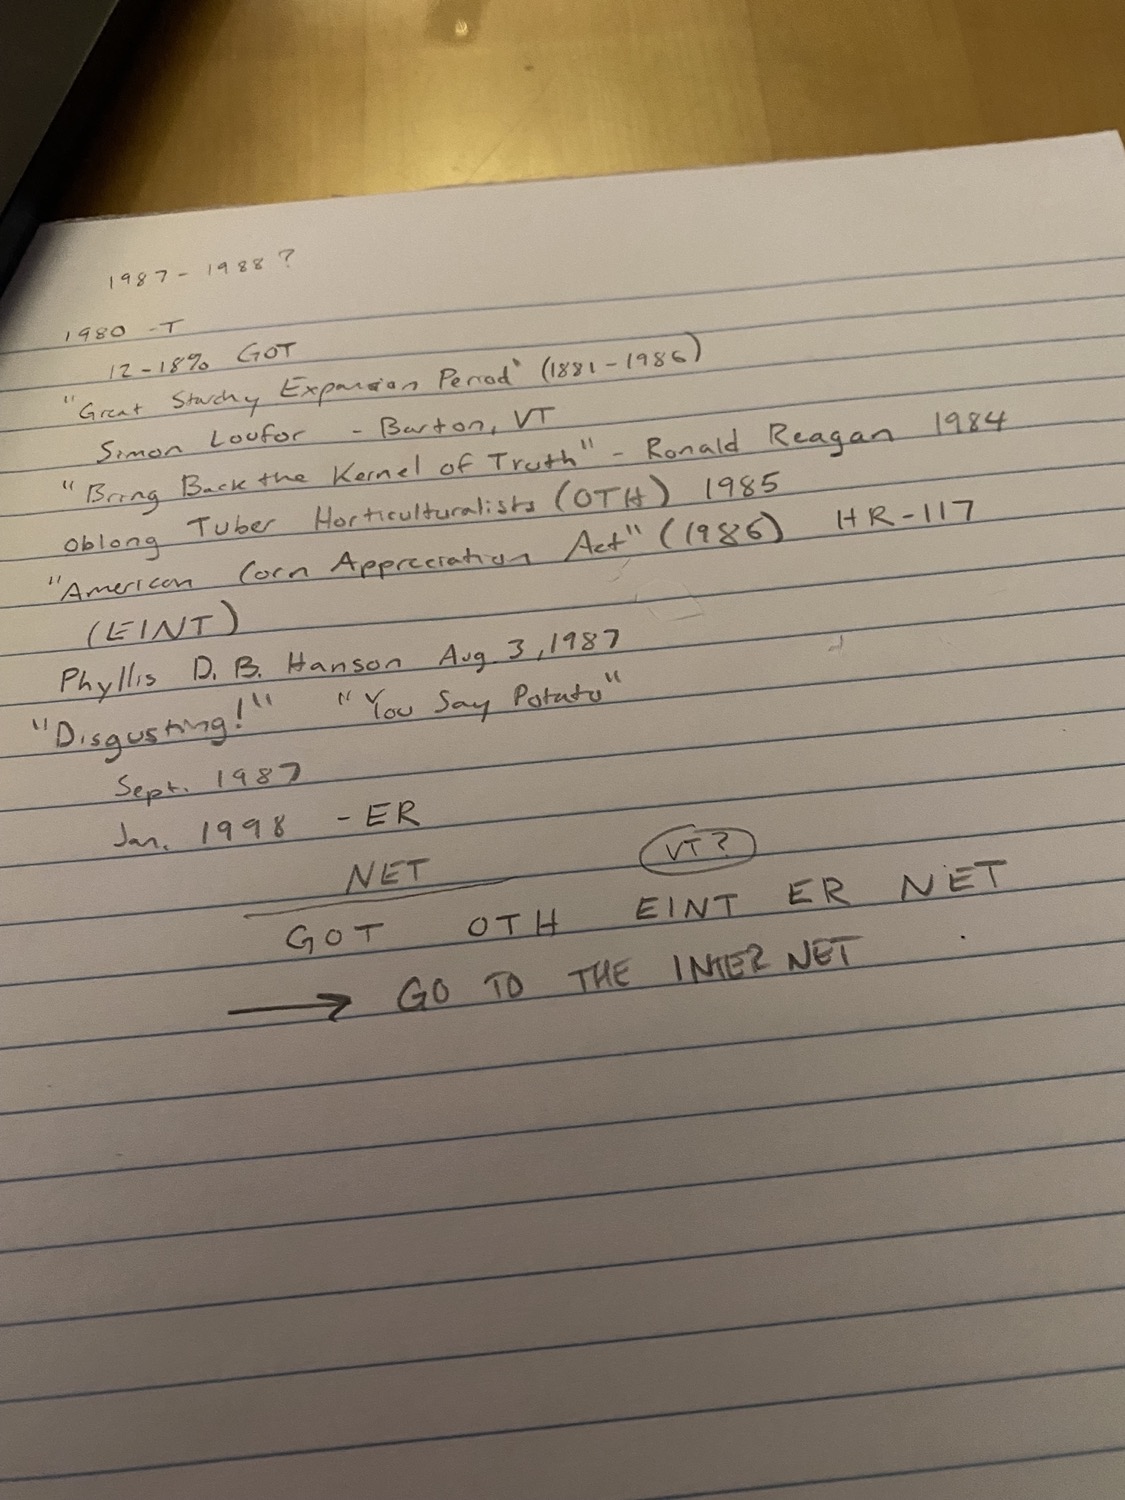 1987 - 1988 ?
1980 - T
12-18% GOT
"Great Starchy Expansion Period" (1881-1986)
Simon Loufor - Barton, VT
"Bring Back the Kernel of Truth" - Ronald Reagan 1984
oblong Tuber Horticulturalists (OTH) 1985
"American Corn Appreciation Act" (1986) HR-117
(EINT)
Phyllis D. B. Hanson Aug 3, 1987
"Disgusting!" "You Say Potato"
Sept. 1987
Jan. 1998 - ER
NET
VT?
GOT OTH EINT ER NET
→ GO TO THE INTERNET